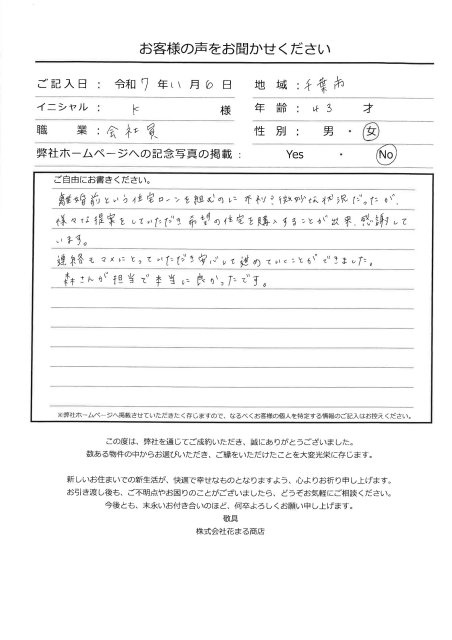 お客様の声をお聞かせください
ご記入日 : 令和 7 年 11 月 6 日 地 域 : 千葉市
イニシャル : K 様 年 齢 : 43 才
職 業 : 会社員 性 別 : 男 ・ 女
弊社ホームページへの記念写真の掲載 : Yes ・ No
ご自由にお書きください。
離婚前という住宅ローンを組むのに不利?微妙な状況だったが、
様々な提案をしていただき希望の住宅を購入することが出来、感謝して
います。
連絡もマメにとっていただき安心して進めていくことができました。
森さんが担当で本当に良かったです。
※弊社ホームページへ掲載させていただきたく存じますので、なるべくお客様の個人を特定する情報のご記入はお控えください。
この度は、弊社を通じてご成約いただき、誠にありがとうございました。
数ある物件の中からお選びいただき、ご縁をいただけたことを大変光栄に存じます。
新しいお住まいでの新生活が、快適で幸せなものとなりますよう、心よりお祈り申し上げます。
お引き渡し後も、ご不明点やお困りのことがございましたら、どうぞお気軽にご相談ください。
今後とも、末永いお付き合いのほど、何卒よろしくお願い申し上げます。
敬具
株式会社花まる商店